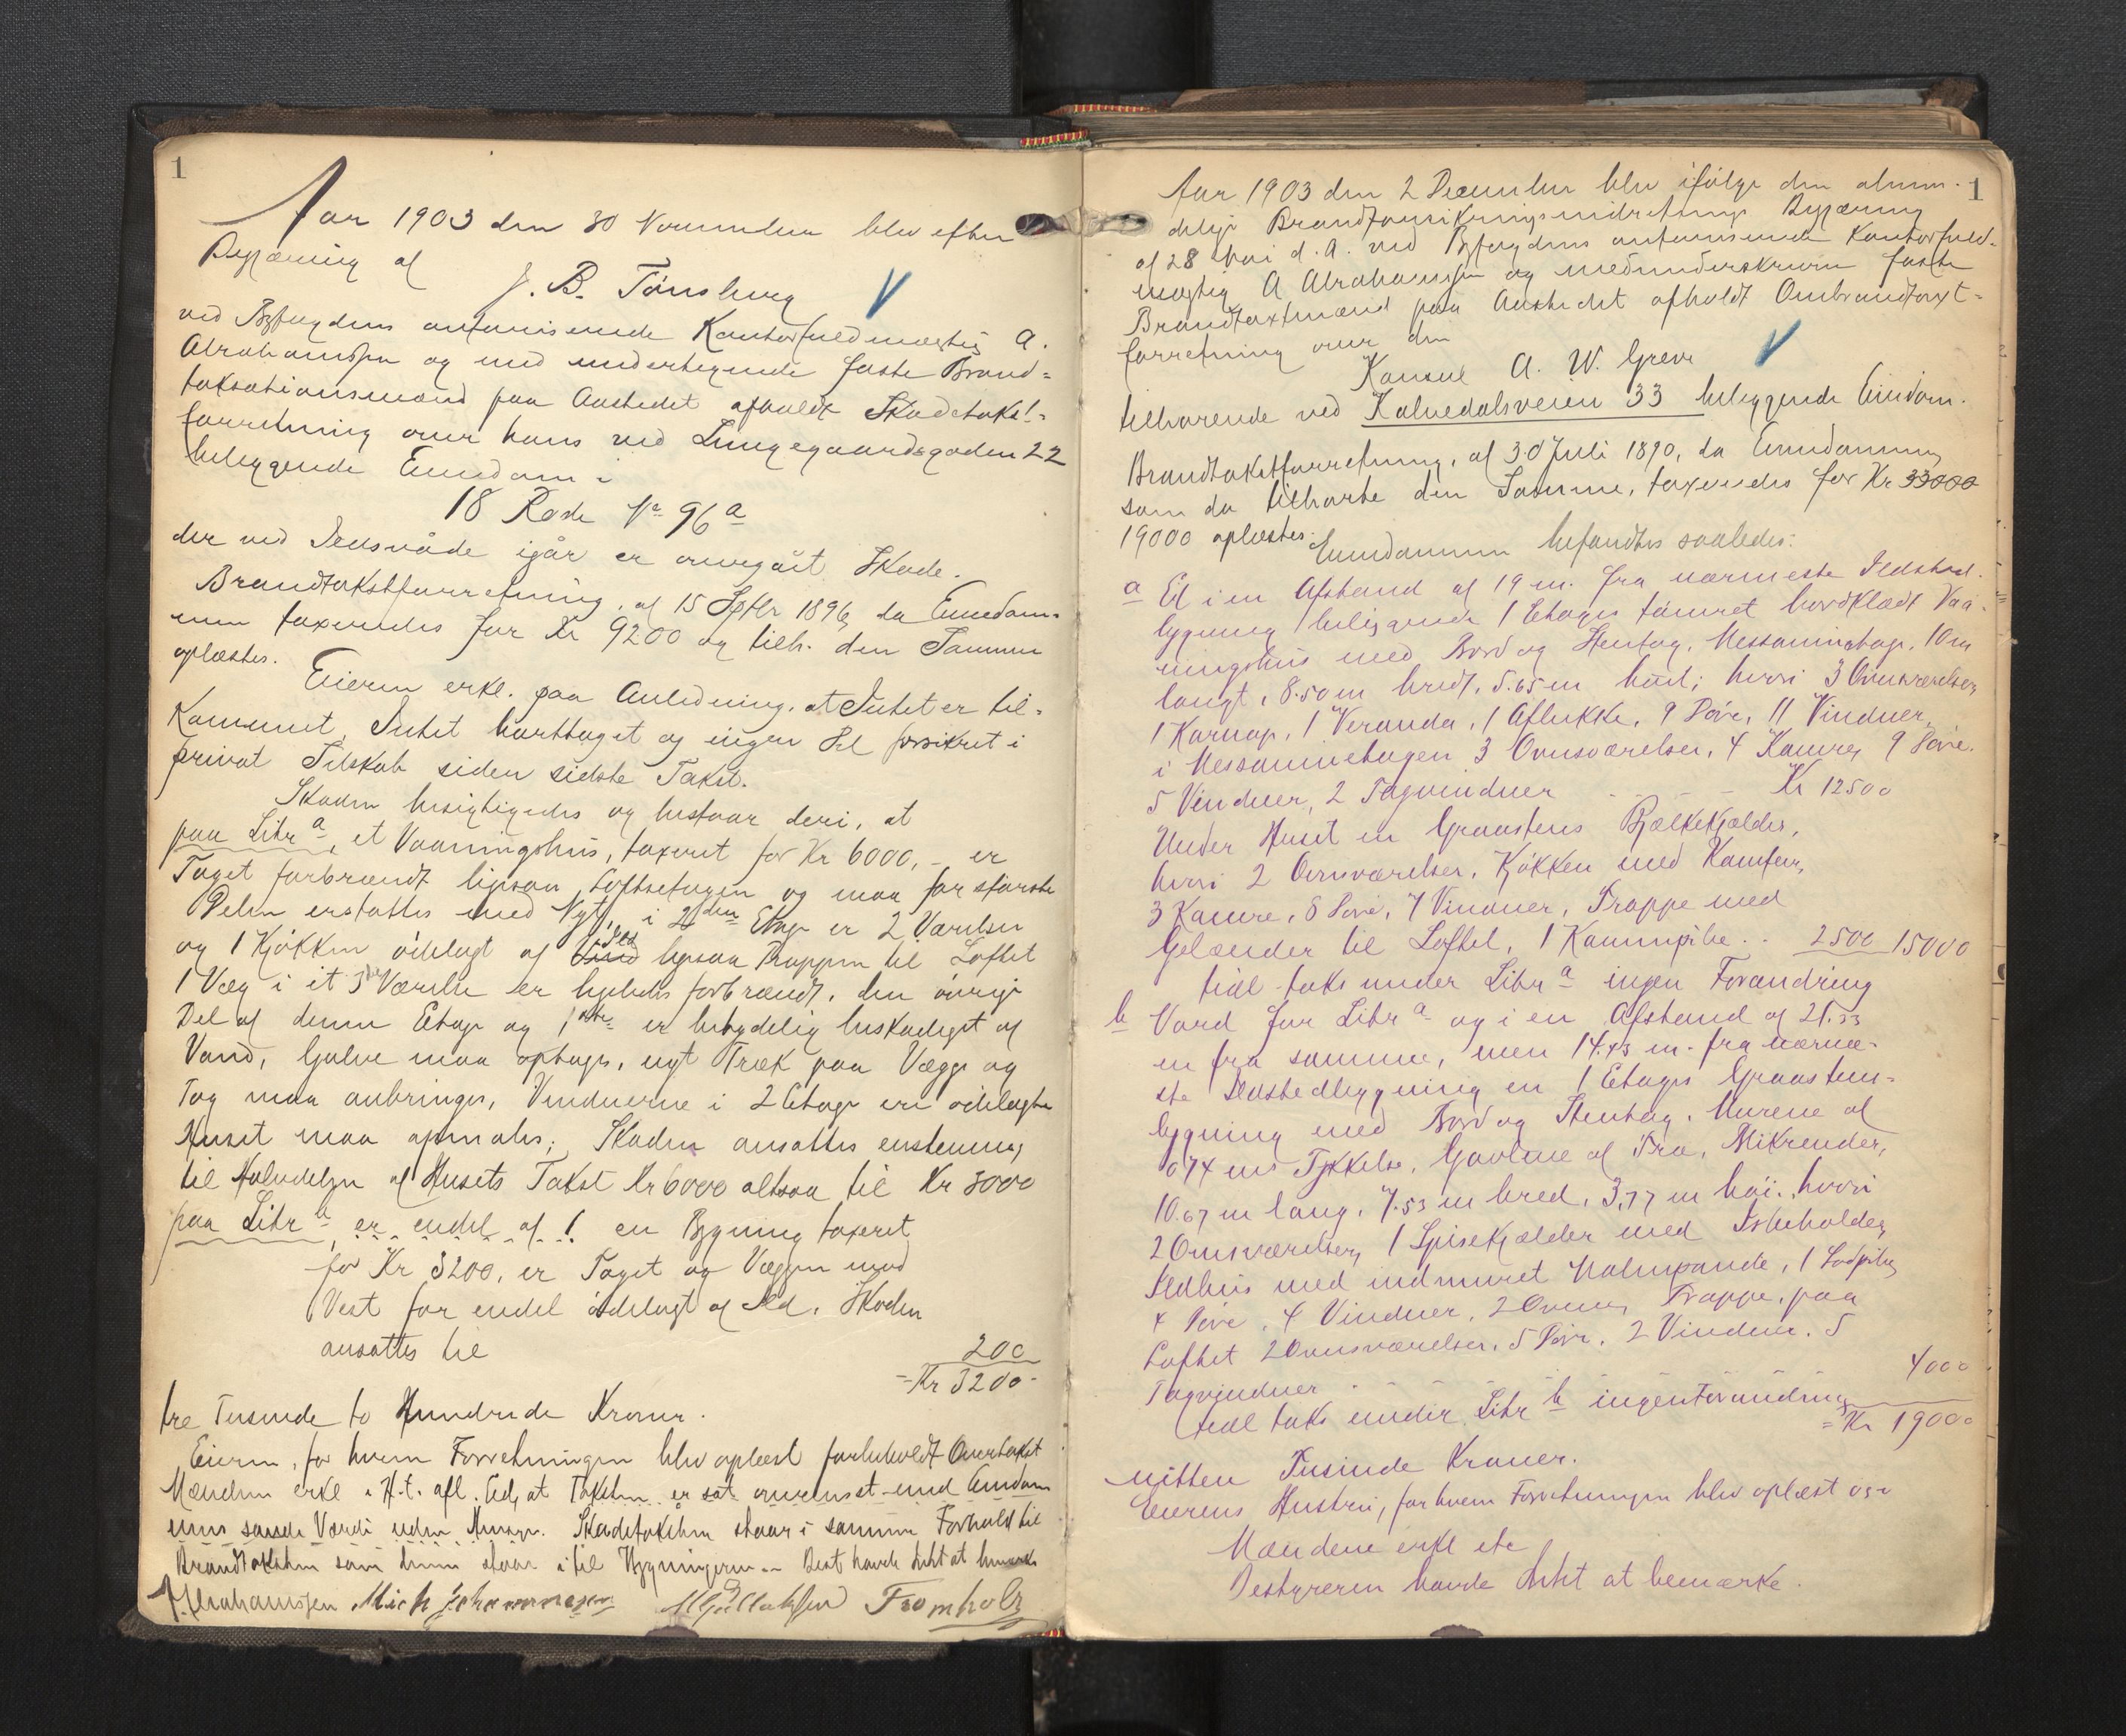 1
Aar 1903 den 30 November blev efter
Begjæring af
J. B. Tönsberg
ved Byfogdens antagne Kontorfuldmægtig A.
Abrahamsen og med undertegnede faste Brand=
taksationsmænd paa Aastedet afholdt Skadetakst-
forretning over hans ved Lungegaardsgaden 22
beliggende Eiendom i
18 Rode No 96 a
der ved Ildsvåde igår er overgåt Skade.
Brandtakstforretning, af 15 Septbr 1896, da Eiendom-
men taxeredes for Kr 9200 og tilh. den Samme
oplæstes.
Eieren erkl. paa Anledning, at Intet er til-
kommet, Intet borttaget og ingen Del forsikret i
privat Selskab siden sidste Takst.
Skaden besigtigedes og bestaar deri, at
paa Litr a, et Vaaningshus, taxeret for Kr 6000,- er
Taget forbrændt ligesaa Loftsetagen og maa for største
Delen erstattes med Nyt, i 2den Etage er 2 Værelser
og 1 Kjøkken ödelagt af Ild ligesaa Trappen til Loftet
1 Væg i et 3die Værelse er ligeledes forbrændt, den övrige
Del af denne Etage og 1ste er betydelig beskadiget af
Vand, Gulve maa optages, nyt Træk paa Vægge og
Tag maa anbringes, Vinduerne i 2 Etage ere ödelagte
Huset maa opmales; Skaden ansattes enstemmig
til Halvdelen af Husets Takst Kr 6000 altsaa til Kr 3000
paa Litr er endel af en Bygning taxeret
for Kr 3200, er Taget og Væggen mod
Vest for endel ödelagt af Ild. Skaden
ansattes til 200
= Kr 3200 -
tre Tusinde to Hundrede Kroner.
Eieren, for hvem Forretningen blev oplæst forbeholdt Overtakst
Mændene erkl. i H.t. afl. Ed, at Taksten er sat overensst. med Eiendom
mens sande Værdi uden Hensyn. Skadetaksten staar i samme Forhold til
Brandtaksten som denne staar i til Bygningerne. Best. havde Intet at bemærke
A Abrahamsen Mich Johannessen Fromholz
1
Aar 1903 den 2 December blev ifölge den almin-
delige Brandforsikringsindretnings Begjæring
af 28 Mai d. A. ved Byfogdens Kontorfuld-
mægtig A Abrahamsen og medunderskrevne faste
Brandtaxtmænd paa Aastedet afholdt Ombrandtaxt-
forretning over den
Konsul A. W. Greve
tilhørende ved Kalvedalsveien 33 beliggende Eiendom.
Brandtakstforretning, af 30 Juli 1890, da Eiendommen
som da tilhørte den Samme, taxeredes for Kr 33000
19000 oplæstes.
Eiendommen befandtes saaledes:
a Et i en Afstand af 19 m. fra nærmeste Ildsted-
bygning beliggende 1 Etages tømret bordklædt Vaa-
ningshus med Bord og Stentag, Messaninetage, 10 m
langt, 8.50 m bredt, 5.65 m höit; hvori 3 Ovnsværelser,
1 Karnap, 1 Veranda, 1 Aflukke, 9 Döre, 11 Vinduer,
i Messaninetagen 3 Ovnsværelser, 4 Kamre, 9 Döre.
5 Vinduer, 2 Tagvinduer - - - Kr 12500
Under Huset en Graastens Bjælkekjælder,
hvori 2 Ovnsværelser, Kjökken med Komfur,
3 Kamre, 8 Döre, 7 Vinduer, Trappe med
Gelænder til Loftet, 1 Kaminpibe . . 2500 15000
tidl. taks under Litr a ingen Forandring
b Vord for Litr a og i en Afstand af 21.33
m fra samme, men 14.43 m. fra nærme-
ste Ildstedbygning en 1 Etages Graastens-
bygning med Bord og Stentag. Murene af
0.74 ms Tykkelse, Gavlene af Træ, Blikrender,
10.67 m lang, 7.53 m bred, 3,77 m höi, hvori
2 Ovnsværelser, 1 Spisekjælder med Isbeholder,
Ildhus med indmuret Malmpande, 1
4 Döre, 4 Vinduer, 2 Ovne, Trappe. paa
Loftet 2 Ovnsværelser, 5 Döre, 2 Vinduer. 5
Tagvinduer - - - - 4000
tidl taks under Litr b ingen Forandring = Kr 19000
nitten Tusinde Kroner.
Eierens Hustru, for hvem Forretningen blev oplæst osv
Mændene erkl etc
Bestyreren havde Intet at bemærke.